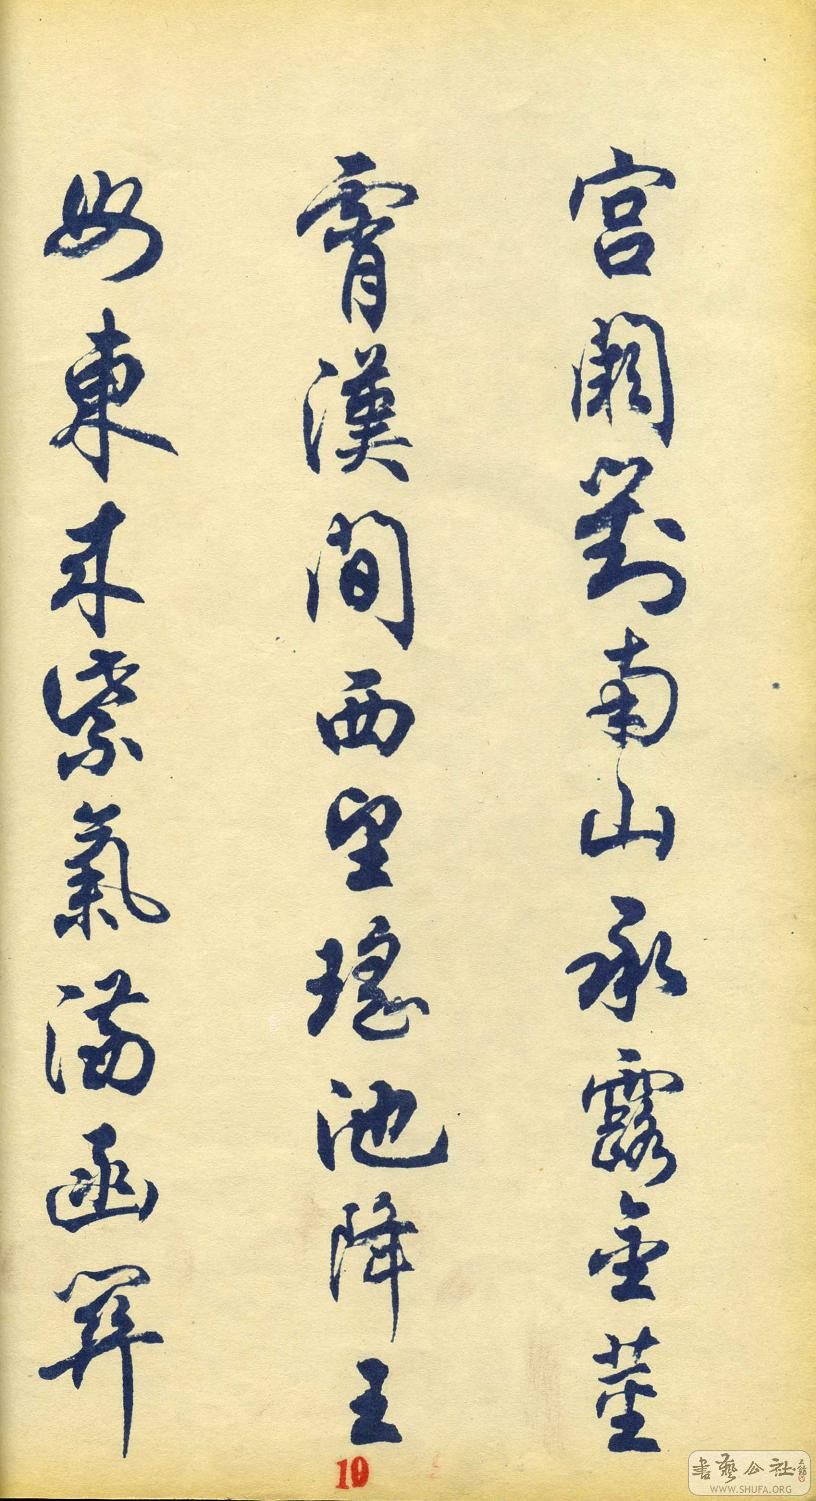 宫阙對南山承露金莖
霄漢間西望瑤池降王
母東来紫氣滿函關
19
書藝公社
WWW.SHUFA.ORG